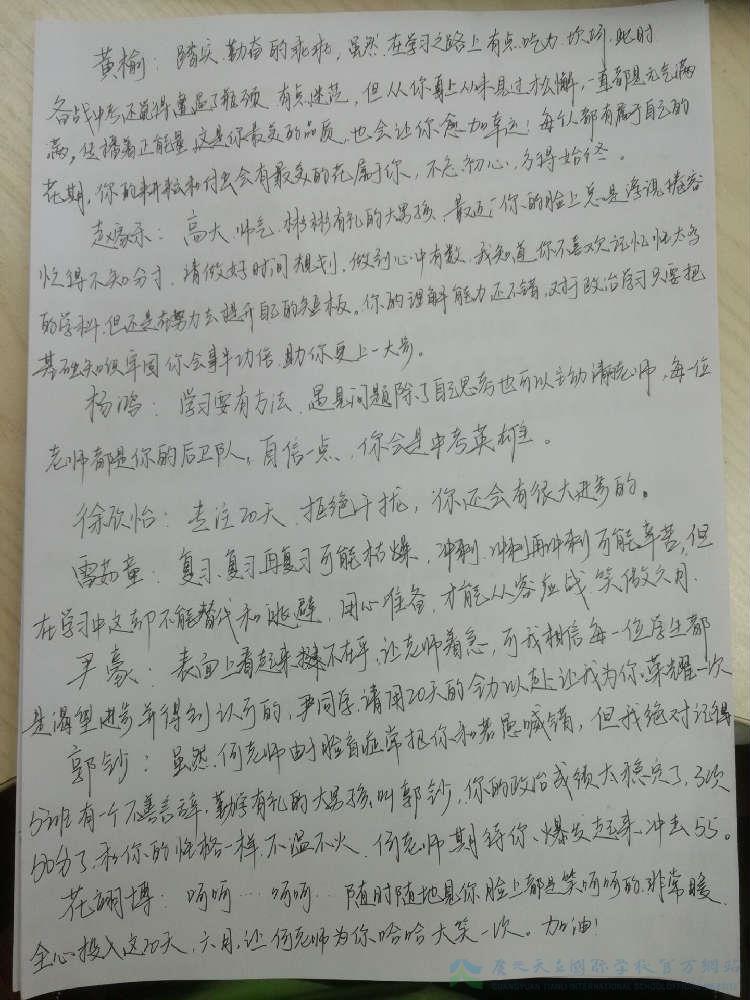 黄榆：踏实、勤奋的乖乖，虽然在学习之路上有点吃力、坎坷，此时
备战中考还觉得遭遇了瓶颈，有点迷茫，但从你身上从未见过松懈，一直都是元气满
满，传播着正能量，这是你最美的品质，也会让你愈加幸运！每个人都有属于自己的
花期，你的耕耘和付出会有最美的花属于你，不忘初心，方得始终。
高大、帅气、彬彬有礼的大男孩，最近，你的脸上总是浮现倦容
忙得不知分寸，请做好时间规划，做到心中有数，我知道你不喜欢记忆性太强
的学科，但还是在努力去提升自己的短板。你的理解能力还不错，对于政治学习只要把
基础知识牢固你会事半功倍，助你更上一大步。
杨鸿：学习要有方法，遇见问题除了自己思考也可以主动请教老师，每一位
老师都是你的后卫队，自信一点，你会是中考英雄。
徐欣怡：专注20天，拒绝干扰，你还会有很大进步的。
雷茹童：复习、复习再复习可能枯燥，冲刺、冲刺再冲刺可能辛苦，但
在学习中这却不能替代和逃避，用心准备，才能从容应战，笑傲六月。
尹豪：表面上看起来不在乎，让老师着急，可我相信每一位学生都
是渴望进步并得到认可的，尹同学，请用20天的全力以赴让我为你荣耀一次
郭钞：虽然，何老师由于脸盲症常把你和若愚喊错，但我绝对记得
5班有一个不善言辞，勤学有礼的大男孩叫郭钞，你的政治成绩太稳定了，3次
50分了，和你的性格一样，不温不火，何老师期待你，爆发起来，冲击55。
花翊博：呵呵…呵呵…随时随地见你脸上都是笑呵呵的，非常暖，
全心投入这20天，六月，让何老师为你哈哈大笑一次。加油！
广元天立国际学校官方网站
GUANGYUAN TIANLI INTERNATIONAL SCHOOL OFFICIAL WEBSITE